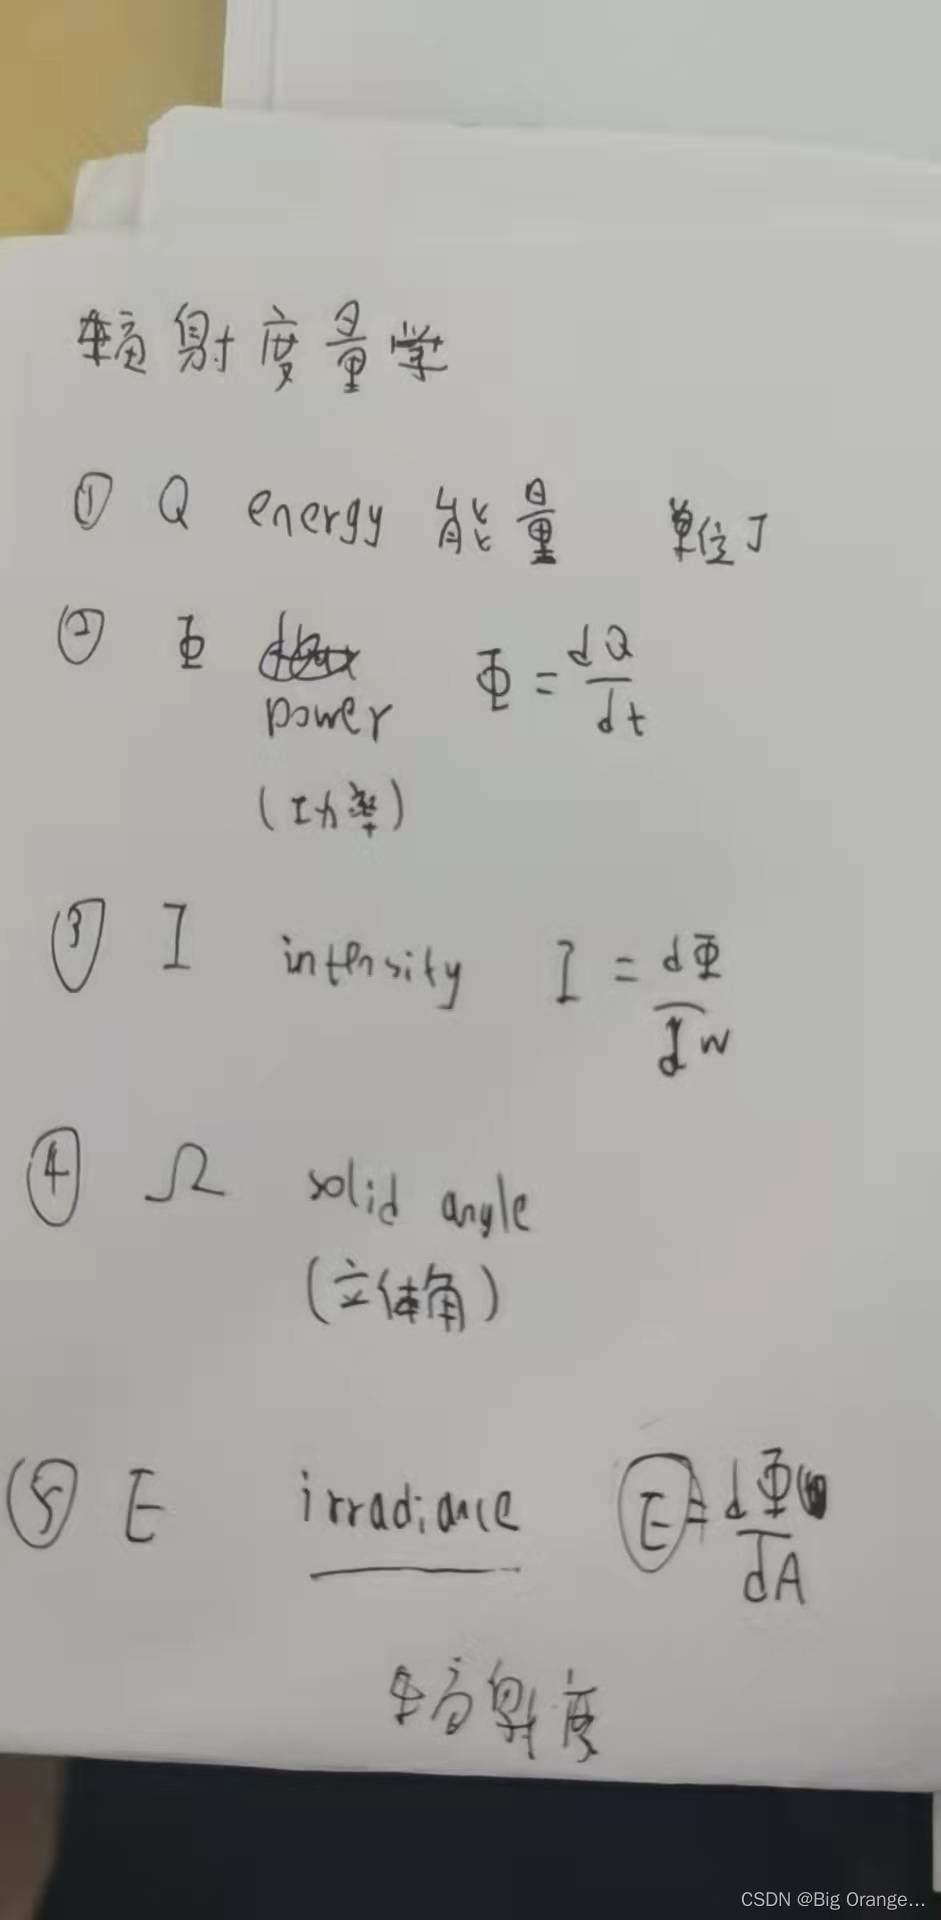 辐射度量学
① Q energy 能量 单位J
② Φ power Φ = dQ/dt
(功率)
③ I intensity I = dΦ/dw
④ Ω solid angle
(立体角)
⑤ E irradiance E = dΦ/dA
辐射度
CSDN @Big Orange...